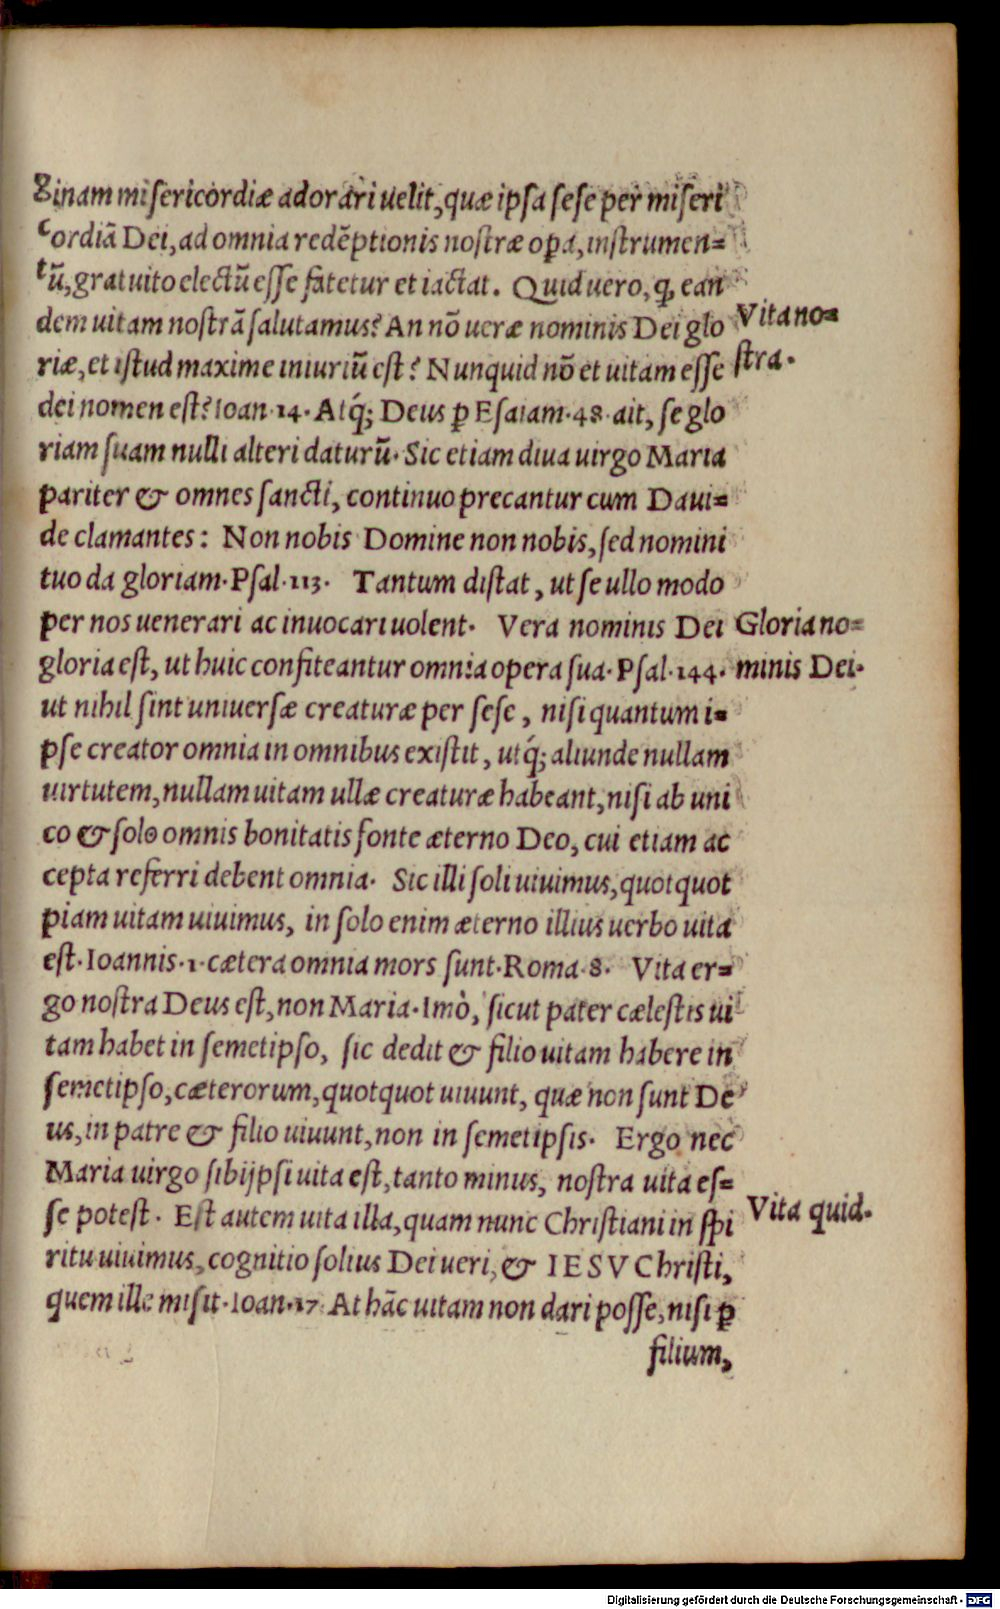 ginam misericordiæ adorari uelit, quæ ipsa sese per miseri
cordiã Dei, ad omnia redẽptionis nostræ opera, instrumen=
tũ, gratuito electũ esse fatetur et iactat. Quid uero, ꝙ ean
dem uitam nostrã salutamus? An nõ ueræ nominis Dei glo
Vita no=
riæ, et istud maxime iniuriũ est? Nunquid nõ et uitam esse
stra.
dei nomen est? Ioan. 14. Atq́; Deus ꝑ Esaiam. 48. ait, se glo
riam suam nulli alteri daturũ. Sic etiam diua uirgo Maria
pariter & omnes sancti, continuo precantur cum Daui=
de clamantes: Non nobis Domine non nobis, sed nomini
tuo da gloriam. Psal. 113. Tantum distat, ut se ullo modo
per nos uenerari ac inuocari uolent. Vera nominis Dei
Gloria no=
gloria est, ut huic confiteantur omnia opera sua. Psal. 144.
minis Dei.
ut nihil sint uniuersæ creaturæ per sese, nisi quantum i=
pse creator omnia in omnibus existit, utq́; aliunde nullam
uirtutem, nullam uitam ullæ creaturæ habeant, nisi ab uni
co & solo omnis bonitatis fonte æterno Deo, cui etiam ac
cepta referri debent omnia. Sic illi soli uiuimus, quotquot
piam uitam uiuimus, in solo enim æterno illius uerbo uita
est. Ioannis. 1. cætera omnia mors sunt. Roma. 8. Vita er=
go nostra Deus est, non Maria. Imò, sicut pater cælestis ui
tam habet in semetipso, sic dedit & filio uitam habere in
semetipso, cæterorum, quotquot uiuunt, quæ non sunt De
us, in patre & filio uiuunt, non in semetipsis. Ergo nec
Maria uirgo sibijpsi uita est, tanto minus, nostra uita es=
se potest. Est autem uita illa, quam nunc Christiani in spi
Vita quid.
ritu uiuimus, cognitio solius Dei ueri, & IESV Christi,
quem ille misit. Ioan. 17. At hãc uitam non dari posse, nisi ꝑ
filium,
Digitalisierung gefördert durch die Deutsche Forschungsgemeinschaft - DFG